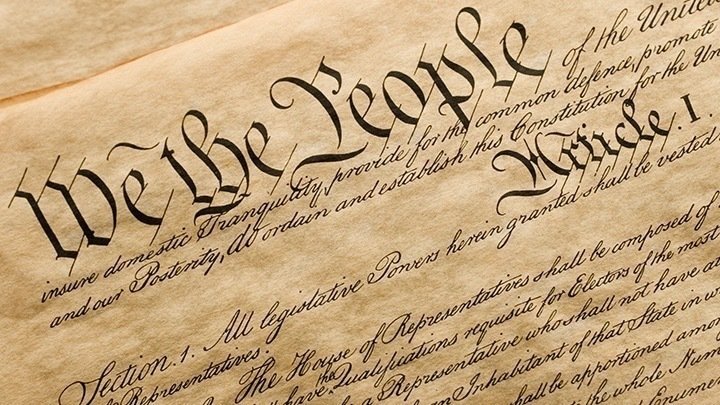 We the People of the United
insure domestic Tranquility, provide for the common defence, promote
and our Posterity, do ordain and establish this Constitution for the Un
Article. I.
Section. 1. All legislative Powers herein granted shall be vested
Representatives.
The House of Representatives shall be composed of
have the Qualifications requisite for Electors of the most
a Representative who shall not have
an Inhabitant of that State in w
shall be apportioned amon
the whole Num